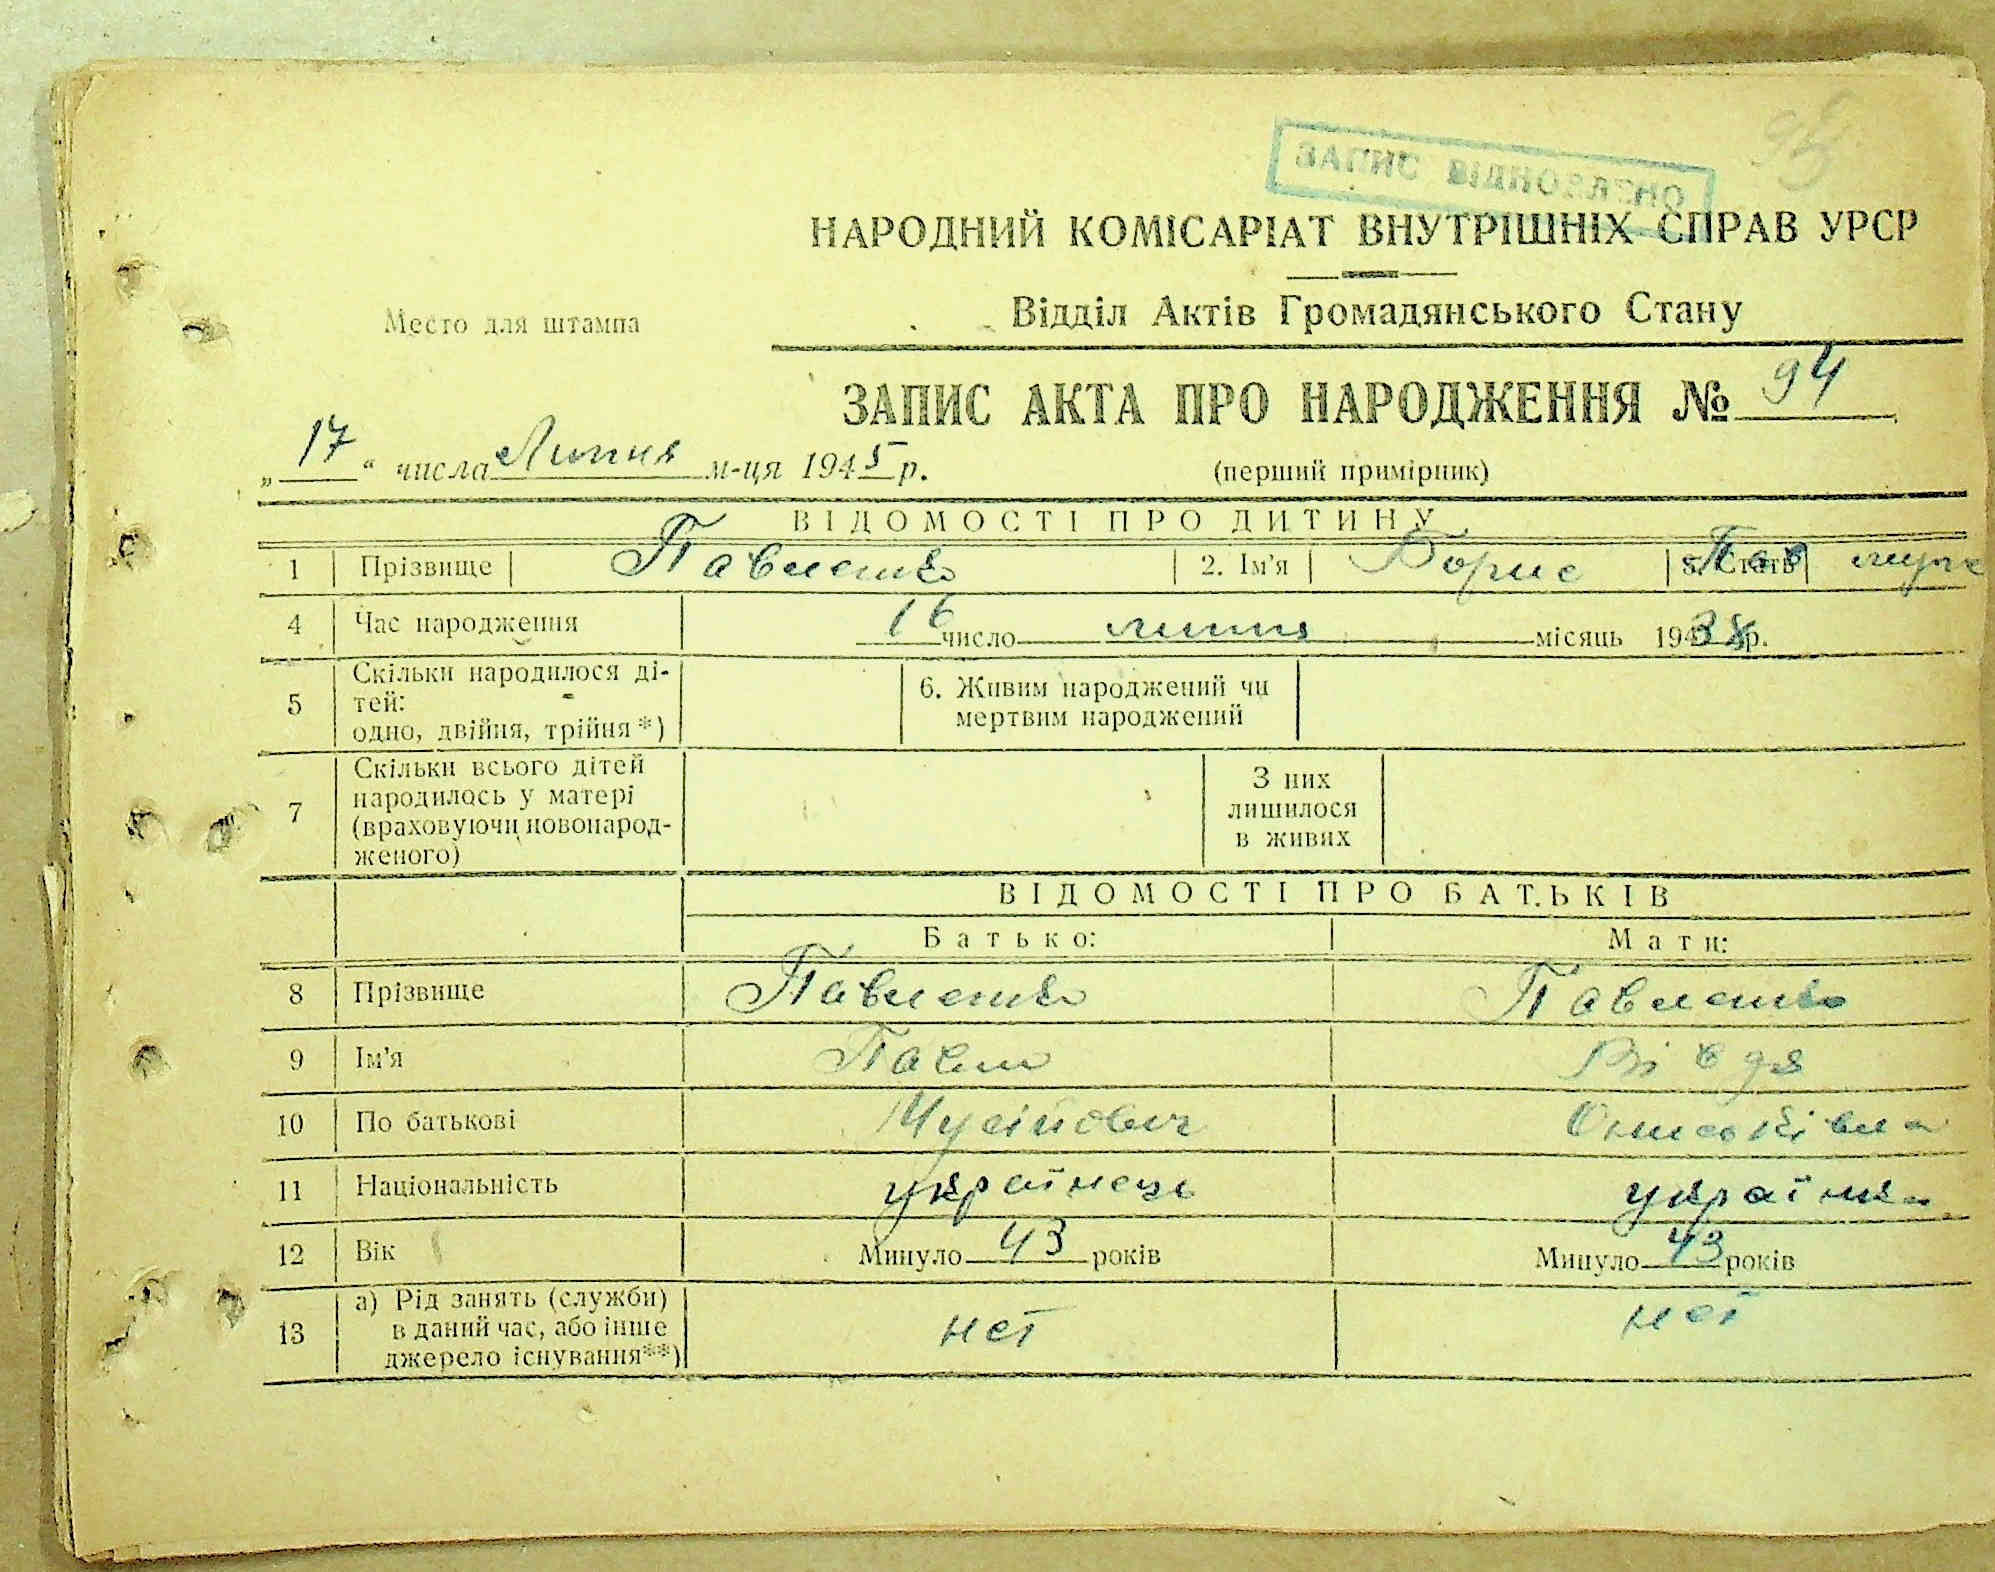 ЗАПИС ВІДНОВЛЕНО
НАРОДНИЙ КОМІСАРІАТ ВНУТРІШНІХ СПРАВ УРСР
Место для штампа
Відділ Актів Громадянського Стану
ЗАПИС АКТА ПРО НАРОДЖЕННЯ № 94
„17“ числа Липня м-ця 1945 р.
(перший примірник)
ВІДОМОСТІ ПРО ДИТИНУ
1 Прізвище Павленко 2. Ім'я Борис Пав 3. Стать муж
4 Час народження 16 число липня місяць 1938 р.
5 Скільки народилося ді-
тей:
одно, двійня, трійня*)
6. Живим народжений чи
мертвим народжений
7 Скільки всього дітей
народилось у матері
(враховуючи новонарод-
женого)
З них
лишилося
в живих
ВІДОМОСТІ ПРО БАТЬКІВ
Батько: Мати:
8 Прізвище Павленко Павленко
9 Ім'я Павло Вівдя
10 По батькові Мусійович
11 Національність українець українка
12 Вік Минуло 43 років Минуло 43 років
13 а) Рід занять (служби)
в даний час, або інше
джерело існування**)
нет нет